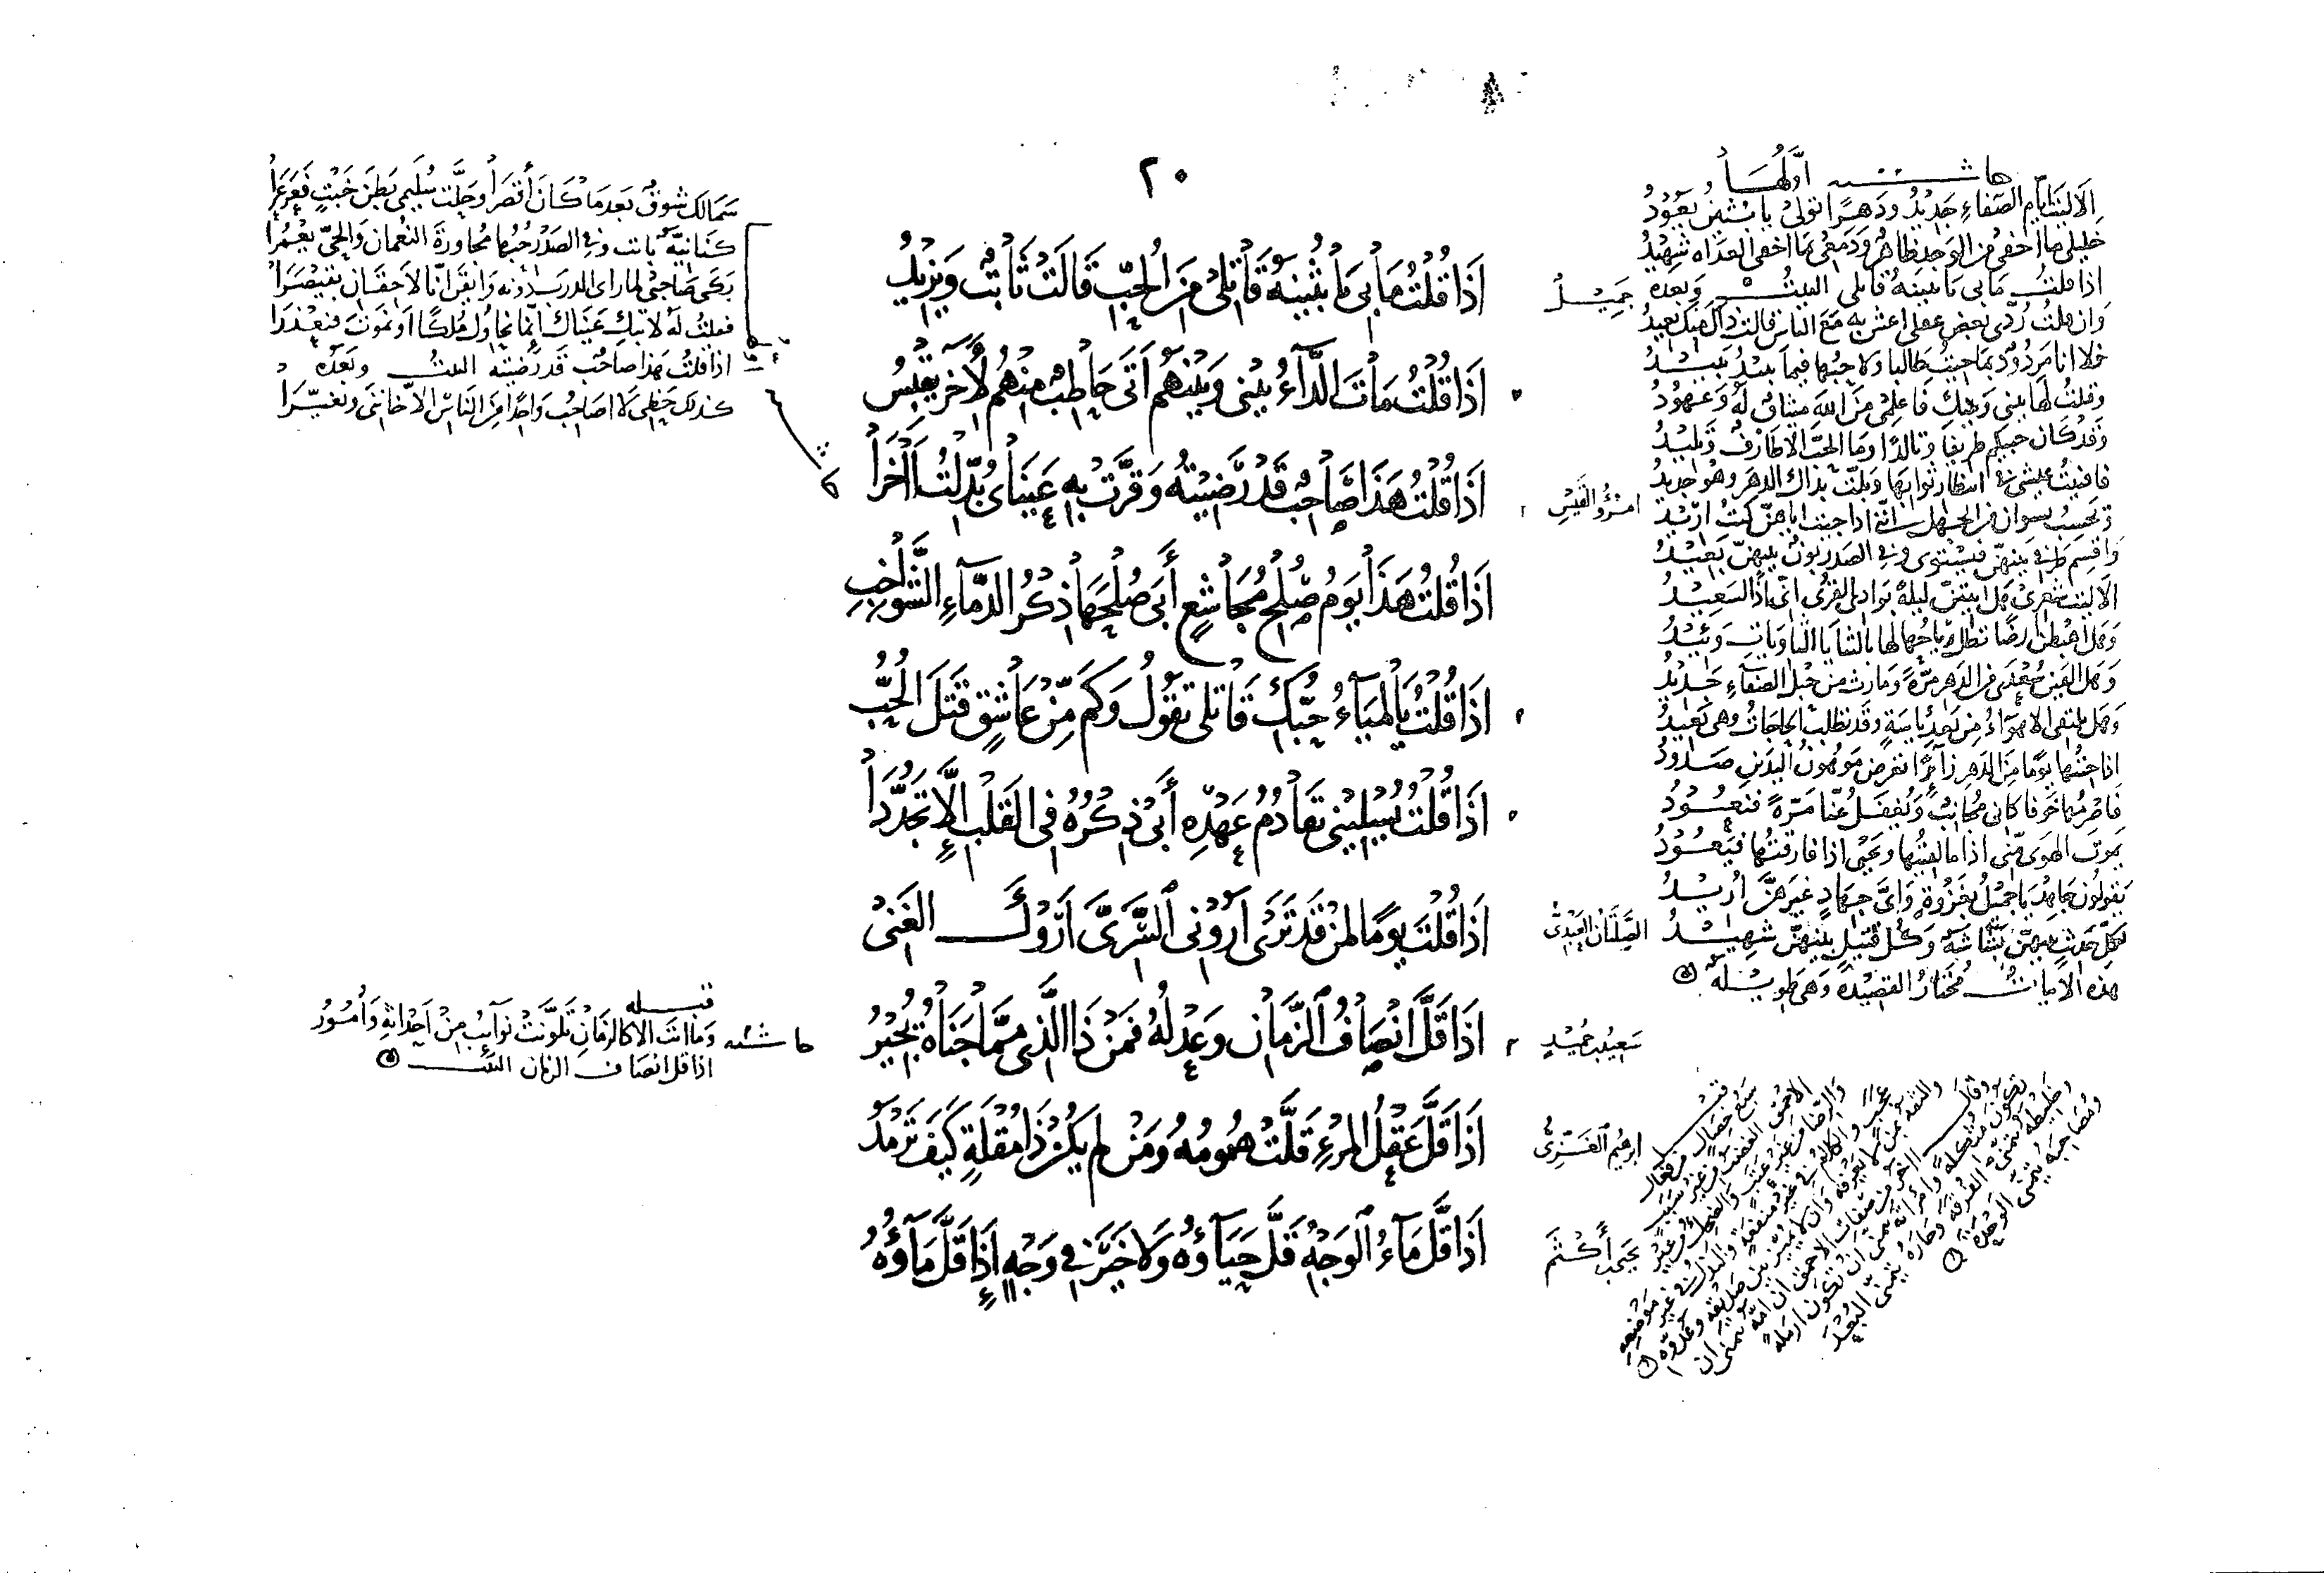 ٢٠
إِذَا قُلْتُ مَا بِي يَا بُثَيْنَةُ قَاتِلِي مِنَ الحُبِّ قَالَتْ ثَابِتٌ وَيَزِيدُ
إِذَا قُلْتُ مَاتَ الدَّآءُ بَيْنِي وَبَيْنَهُمْ أَتَى حَاطِبٌ مِنْهُمْ لآخَرَ يَقْبِسُ
إِذَا قُلْتُ هَذَا صَاحِبٌ قَدْ رَضِيتُهُ وَقَرَّتْ بِهِ عَيْنَايَ بُدِّلْتُ آخَرَا
إِذَا قُلْتُ هَذَا يَوْمُ صُلْحِ مُجَاشِعٍ أَبَى صُلْحَهَا ذِكْرُ الدِّمَآءِ الشَّوَاخِبِ
إِذَا قُلْتُ يَا لَمْيَآءُ حُبُّكِ قَاتِلِي تَقُولُ وَكَمْ مِنْ عَاشِقٍ قَتَلَ الحُبُّ
إِذَا قُلْتُ يُسْلِينِي تَقَادُمُ عَهْدِهِ أَبَى ذِكْرُهُ فِي القَلْبِ إِلَّا تَجَدُّدَا
إِذَا قُلْتَ يَوْمًا لِمَنْ قَدْ تَرَى أَرُونِي السَّرِيَّ أَرَوْكَ الغَنِي
إِذَا قَلَّ إِنْصَافُ الزَّمَانِ وَعَدْلُهُ فَمَنْ ذَا الَّذِي مِمَّا جَنَاهُ يُجِيرُ
إِذَا قَلَّ عَقْلُ المَرْءِ قَلَّتْ هُمُومُهُ وَمَنْ لَمْ يَكُنْ ذَا مُقْلَةٍ كَيْفَ تَرْمَدُ
إِذَا قَلَّ مَآءُ الوَجْهِ قَلَّ حَيَآؤُهُ وَلَا خَيْرَ فِي وَجْهٍ إِذَا قَلَّ مَآؤُهُ
جَمِيْلُ
امْرُؤُ القَيْسِ
الصَّلَتَانُ العَبْدِيُّ
سَعِيدُ بْنُ حُمَيْدٍ
ابرهيم الغَزِّيُّ
يحيى بن أَكْثَم
حاشية أَوَّلُهَا
أَلَا لَيْتَ أَيَّامَ الصَّفَاءِ جَدِيدُ وَدَهْرًا تَوَلَّى يَا بُثَيْنَ يَعُودُ
خَلِيلَيَّ مَا أُخْفِي مِنَ الوَجْدِ ظَاهِرٌ وَدَمْعِي بِمَا أُخْفِي الغَدَاةَ شَهِيدُ
إِذَا قُلْتُ مَا بِي يَا بُثَيْنَةُ قَاتِلِي البيت وَبَعْدَهُ
وَإِنْ قُلْتُ رُدِّي بَعْضَ عَقْلِي أَعِشْ بِهِ مَعَ النَّاسِ قَالَتْ ذَاكَ مِنْكَ بَعِيدُ
فَلَا أَنَا مَرْدُودٌ بِمَا جِئْتُ طَالِبًا وَلَا حُبُّهَا فِيمَا يَبِيدُ يَبِيدُ
وَقُلْتُ لَهَا بَيْنِي وَبَيْنَكِ فَاعْلَمِي مِنَ اللهِ مِيثَاقٌ لَهُ وَعُهُودُ
وَقَدْ كَانَ حُبِّيكُمْ طَرِيفًا وَتَالِدًا وَمَا الحُبُّ إِلَّا طَارِفٌ وَتَلِيدُ
فَأَفْنَيْتُ عَيْشِي فِي انْتِظَارِ ثَوَابِهَا وَأَبْلَتْ بِذَاكَ الدَّهْرَ وَهْوَ جَدِيدُ
وَتَحْسَبُ نِسْوَانٌ مِنَ الجَهْلِ أَنَّنِي إِذَا جِئْتُ إِيَّاهُنَّ كُنْتُ أُرِيدُ
وَأَقْسِمُ طَرْفِي بَيْنَهُنَّ فَيَسْتَوِي وَفِي الصَّدْرِ بَوْنٌ بَيْنَهُنَّ بَعِيدُ
أَلَا لَيْتَ شِعْرِي هَلْ أَبِيتَنَّ لَيْلَةً بِوَادِي القُرَى إِنِّي إِذًا لَسَعِيدُ
وَهَلْ أَهْبِطَنْ أَرْضًا تَظَلُّ رِيَاحُهَا لَهَا بِالثَّنَايَا القَاوِيَاتِ وَئِيدُ
وَهَلْ أَلْقَيَنْ سُعْدَى مِنَ الدَّهْرِ مَرَّةً وَمَا رَثَّ مِنْ حَبْلِ الصَّفَآءِ جَدِيدُ
وَهَلْ تَلْتَقِي الأَهْوَآءُ مِنْ بَعْدِ يَأْسَةٍ وَقَدْ تُطْلَبُ الحَاجَاتُ وَهْيَ بَعِيدُ
إِذَا جِئْتُهَا يَوْمًا مِنَ الدَّهْرِ زَآئِرًا تَعَرَّضَ مَوْهُونُ اليَدَيْنِ صَدُودُ
فَأَصْرِمُهَا خَوْفًا كَأَنِّي مُجَانِبٌ وَيُغْفَلُ عَنَّا مَرَّةً فَنَعُودُ
يَمُوتُ الهَوَى مِنِّي إِذَا مَا لَقِيتُهَا وَيَحْيَى إِذَا فَارَقْتُهَا فَيَعُودُ
يَقُولُونَ جَاهِدْ يَا جَمِيلُ بِغَزْوَةٍ وَأَيَّ جِهَادٍ غَيْرَهُنَّ أُرِيدُ
لِكُلِّ حَدِيثٍ بَيْنَهُنَّ بَشَاشَةٌ وَكُلُّ قَتِيلٍ بَيْنَهُنَّ شَهِيدُ
هَذِهِ الأَبْيَاتُ مُخْتَارُ القَصِيدَةِ وَهِيَ طَوِيلَةٌ
سَمَا لَكَ شَوْقٌ بَعْدَمَا كَانَ أَقْصَرَا وَحَلَّتْ سُلَيْمَى بَطْنَ خَبْتٍ فَعَرْعَرَا
كِنَانِيَّةٌ بَانَتْ وَفِي الصَّدْرِ حُبُّهَا مُجَاوِرَةَ النُّعْمَانِ وَالحَيَّ يَعْمُرَا
بَكَى صَاحِبِي لَمَّا رَأَى الدَّرْبَ دُونَهُ وَأَيْقَنَ أَنَّا لَاحِقَانِ بِقَيْصَرَا
فَقُلْتُ لَهُ لَا تَبْكِ عَيْنَاكَ إِنَّمَا نُحَاوِلُ مُلْكًا أَوْ نَمُوتَ فَنُعْذَرَا
إِذَا قُلْتُ هَذَا صَاحِبٌ قَدْ رَضِيتُهُ البيت وَبَعْدَهُ
كَذَلِكَ حَظِّي لَا أُصَاحِبُ وَاحِدًا مِنَ النَّاسِ إِلَّا خَانَنِي وَتَغَيَّرَا
حاشية
قبله
وَمَا أَنْتَ إِلَّا كَالزَّمَانِ تَلَوَّنَتْ نَوَآئِبُ مِنْ أَحْدَاثِهِ وَأُمُورُ
إِذَا قَلَّ إِنْصَافُ الزَّمَانِ البيت